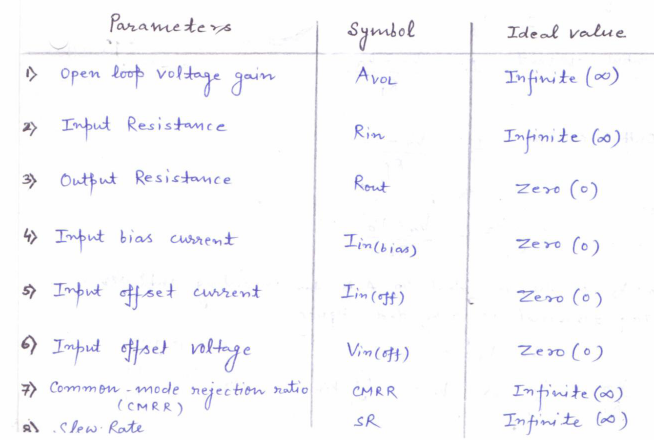 Parameters Symbol Ideal value
1) Open loop voltage gain AVOL Infinite (∞)
2) Input Resistance Rin Infinite (∞)
3) Output Resistance Rout Zero (0)
4) Input bias current Iin(bias) Zero (0)
5) Input offset current Iin(off) Zero (0)
6) Input offset voltage Vin(off) Zero (0)
7) Common-mode rejection ratio CMRR Infinite (∞)
(CMRR)
8) Slew Rate SR Infinite (∞)